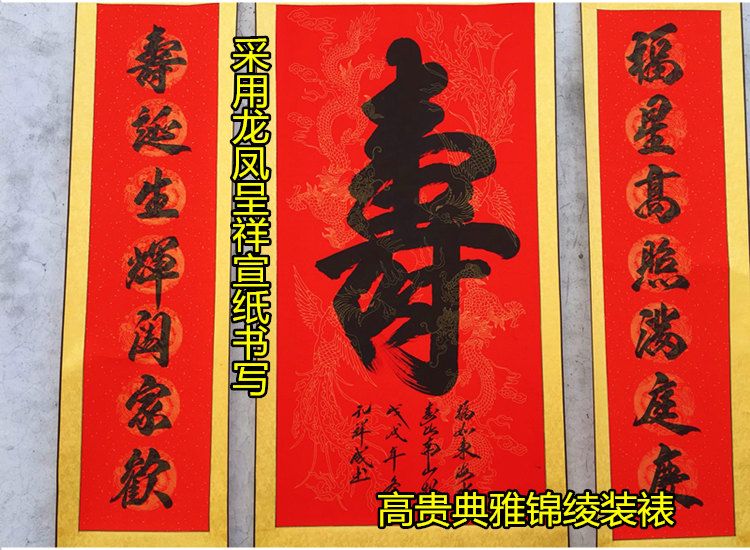 福星高照满庭慶
壽
壽延生輝阖家歡
福如東海
壽比南山
戊戌年
祥成书
采用龙凤呈祥宣纸书写
高贵典雅锦绫装裱